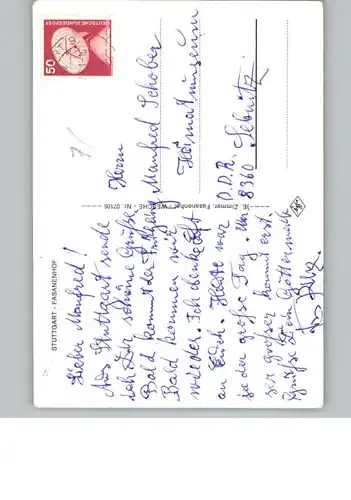 STUTTGART - FASANENHOF
Lieber Manfred!
Aus Stuttgart sende
ich Dir schöne Grüße
Bald kommt der Frühling
Bald kommen wir
wieder. Ich denke oft
an Euch. Heute war
ja der große Tag. Un
ser großer kommt erst
Grüße Dein
H. Zimmer, Fasanenhof - Nr. 07105
DEUTSCHE BUNDESPOST
50
Herrn
Manfred Schober
Heimatmuseum
D.D.R.
8360 Sebnitz